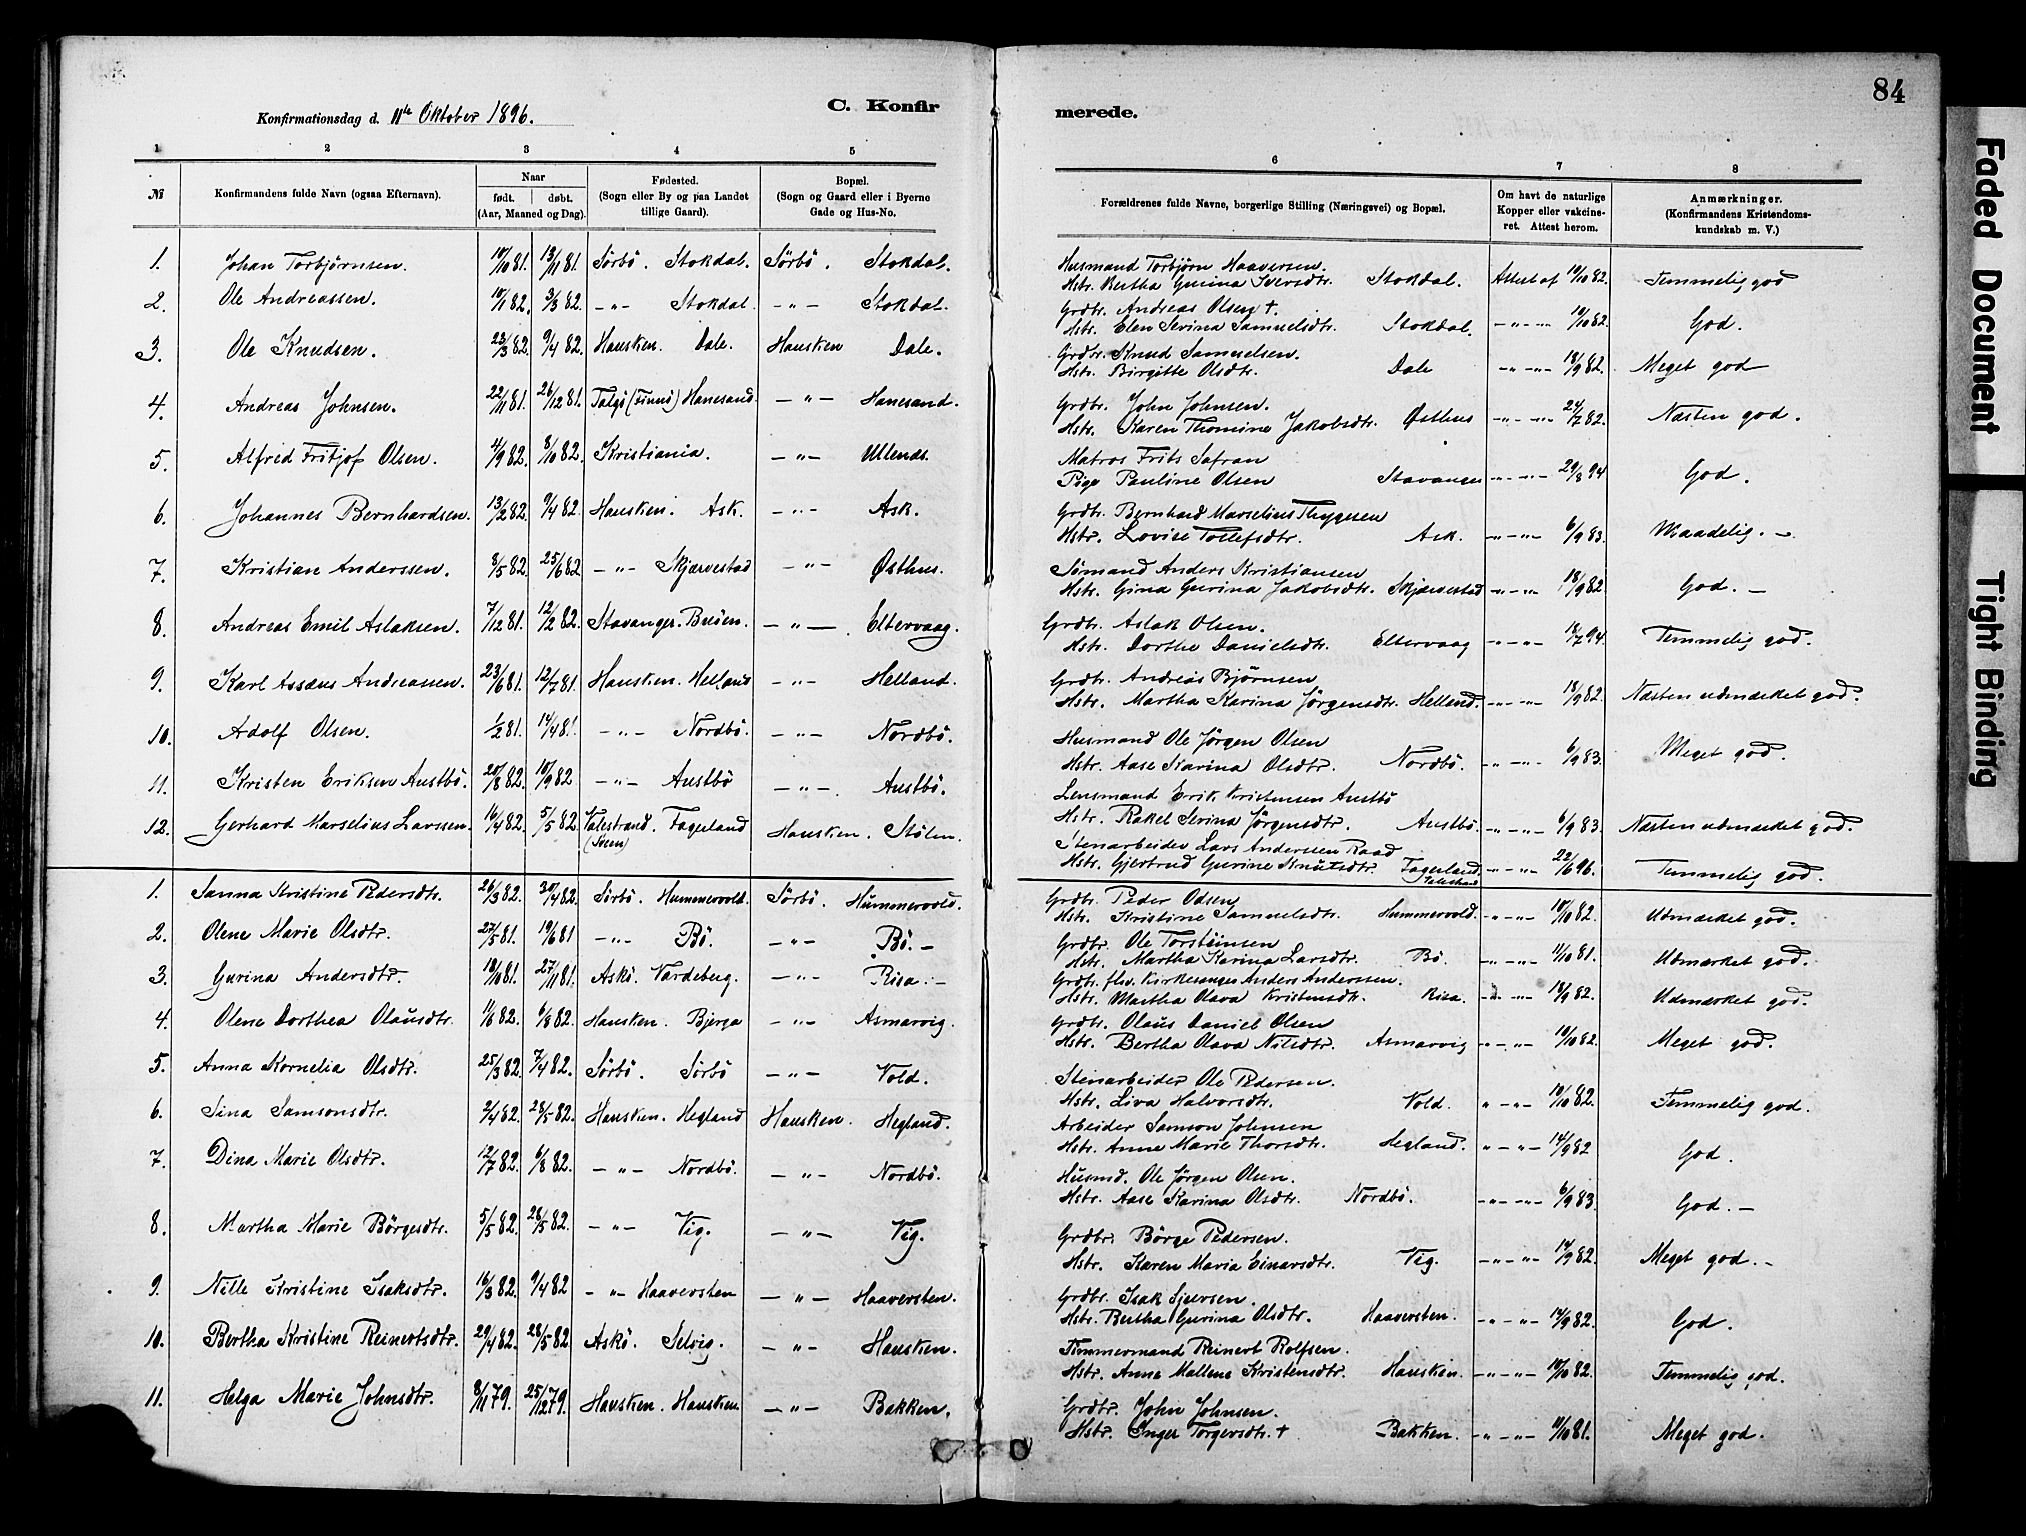 84
C. Konfir merede.
Konfirmationsdag d. 11te Oktober 1896.
1 2 3 4 5 6 7 8
№ Konfirmandens fulde Navn (ogsaa Efternavn). Naar født. døbt. (Aar, Maaned og Dag). Fødested. (Sogn eller By og paa Landet tillige Gaard). Bopæl. (Sogn og Gaard eller i Byerne Gade og Hus-No. Forældrenes fulde Navne, borgerlige Stilling (Næringsvei) og Bopæl. Om havt de naturlige Kopper eller vakcineret. Attest herom. Anmærkninger. (Konfirmandens Kristendomskundskab m. V.)
1. Johan Torbjørnsen. 10/10 81. 13/11 81. Sørbö. Stokdal. Sørbö. Stokdal. Husmand Torbjörn Haaversen. Hstr. Bertha Gurina Iversdtr. Stokdal. Attest af 10/10 82. Temmelig god
2. Ole Andreassen. 10/1 82. 3/3 82. -"- Stokdal -"- Stokdal. Grdbr. Andreas Olsen †. Hstr. Elen Serina Samuelsdtr. Stokdal. -"-"- 10/10 82. God.
3. Ole Knudsen. 23/3 82. 9/4 82. Hausken. Dale. Hausken Dale. Grdbr. Knud Samuelsen. Hstr. Birgitte Olsdtr. Dale -"-"- 18/9 82. Meget god
4. Andreas Johnsen. 22/11 81. 26/12 81. Talgö (Finnö) Hanesand -"- Hanesand. Grdbr. John Johnsen. Hstr. Karen Thomine Jakobsdtr. Østhus -"-"- 24/7 82. Næsten god.
5. Alfred Fritjof Olsen. 4/9 82. 8/10 82. Kristiania. -"- Ullenes. Matros Frits Safran Pige Pauline Olsen Stavanger -"-"- 29/8 94 God.
6. Johannes Bernhardsen. 13/2 82. 9/4 82. Hausken. Ask. -"- Ask. Grdbr. Bernhard Marselius Thygesen Hstr. Lovise Tollefsdtr. Ask. -"-"- 6/9 83. Maadelig. -
7. Kristian Anderssen. 8/5 82. 25/6 82 -"- Skjærvestad -"- Østhus. Sømand Anders Kristiansen Hstr. Gina Gurina Jakobsdtr. Skjærvestad -"-"- 18/9 82. God. -
8. Andreas Emil Aslaksen. 7/12 81. 12/2 82. Stavanger. Buöen. -"- Eltervaag. Grdbr. Aslak Olsen. Hstr. Dorthe Danielsdtr. Eltervaag -"-"- 18/7 94. Temmelig god.
9. Karl Assæus Andreassen. 23/6 81. 12/7 81. Hausken. Helland -"- Helland. Grdbr. Andreas Bjørnsen Hstr. Martha Karina Jörgensdtr. Helland. -"-"- 18/9 82. Næsten udmærket god.
10. Adolf Olsen. 1/2 81. 14/4 81. -"- Nordbö. -"- Nordbö. Husmand Ole Jörgen Olsen Hstr. Aase Karina Olsdtr. Nordbö. -"-"- 6/9 83. Meget god.
11. Kristen Eriksen Austbö. 20/8 82. 10/9 82 -"- Austbö -"-. Austbö. Lensmand Erik Kristensen Austbö Hstr. Rakel Serina Jörgensdtr. Austbö. -"-"- 6/9 83. Næsten udmærket god.
12. Gerhard Marselius Larssen. 16/4 82. 5/5 82. Valestrand. (Sveen) Fagerland Hausken. Stölen. Stenarbeider Lars Anderssen Raad Hstr. Gjertrud Gurine Knutsdtr. Fagerland. Valestrand -"-"- 22/6 96. Temmelig god.
1. Sanna Kristine Pedersdtr. 26/3 82. 30/4 82. Sørbö. Hummervold. Sørbö. Hummervold. Grdbr. Peder Odsen Hstr. Kristine Samuelsdtr. Hummervold. -"-"- 10/10 82. Udmærket god.
2. Olene Marie Olsdtr. 27/5 81. 19/6 81 -"- Bö. -"- Bö. - Grdbr. Ole Torsteinsen Hstr. Martha Karina Larsdtr. Bö. -"-"- 11/10 81. Udmærket god.
3. Gurina Andersdtr. 18/10 81. 27/11 81. Askö. Vardeberg. -"- Risa. - Grdbr. fhv. Kirkesanger Anders Anderssen. Hstr. Martha Olava Kristensdtr. Risa. -"-"- 18/9 82. Udmærket god.
4. Olene Dorthea Olausdtr. 11/6 82. 6/8 82. Hausken. Bjerga -"- Asmarvig. Grdbr. Olaus Daniel Olsen Hstr. Bertha Olava Nilsdtr. Asmarvig -"-"- 10/10 82. Meget god.
5. Anna Kornelia Olsdtr. 25/3 82. 7/4 82. Sørbö. Sørbö -"- Vold. Stenarbeider Ole Pedersen. Hstr. Liva Halvorsdtr. Vold. "-"- 10/10 82. Temmelig god.
6. Sina Samsonsdtr. 2/4 82. 28/5 82. Hausken. Hegland Hausken. Hegland. Arbeider Samson Johnsen Hstr. Anne Marie Thorsdtr. Hegland. "-"- 14/9 82 God.
7. Dina Marie Olsdtr. 12/7 82. 6/8 82. -"- Nordbö. -"- Nordbö. Husmd. Ole Jörgen Olsen. Hstr. Aase Karina Olsdtr. Nordbö. -"-"- 6/9 83. God. -
8. Martha Marie Börgesdtr. 5/5 82. 28/5 82. -"- Vig. -"- Vig. Grdbr. Börge Pedersen. Hstr. Karen Maria Einarsdtr. Vig. -"-"- 14/9 82. Meget god. -
9. Nille Kristine Isaksdtr. 16/3 82. 9/4 82 -"- Haaversten -"- Haaversten. Grdbr. Isak Sjursen. Hstr. Bertha Gurina Olsdtr. Haaversten. -"-"- 14/9 82. God.
10. Bertha Kristine Reinertsdtr. 29/4 82. 28/5 82. Askö. Selvig. -"- Hausken. Tømmermand Reinert Rolfsen. Hstr. Anne Mallene Kristensdtr. Hausken. -"-"- 10/10 82. Temmelig god.
11. Helga Marie Johnsdtr. 8/11 79. 25/12 79. Hausken. Hausken. -"- Bakken. Grdbr. John Johnsen. Hstr. Inger Torgersdtr. † Bakken. -"-"- 11/10 81. Meget god.
Faded Document
Tight Binding